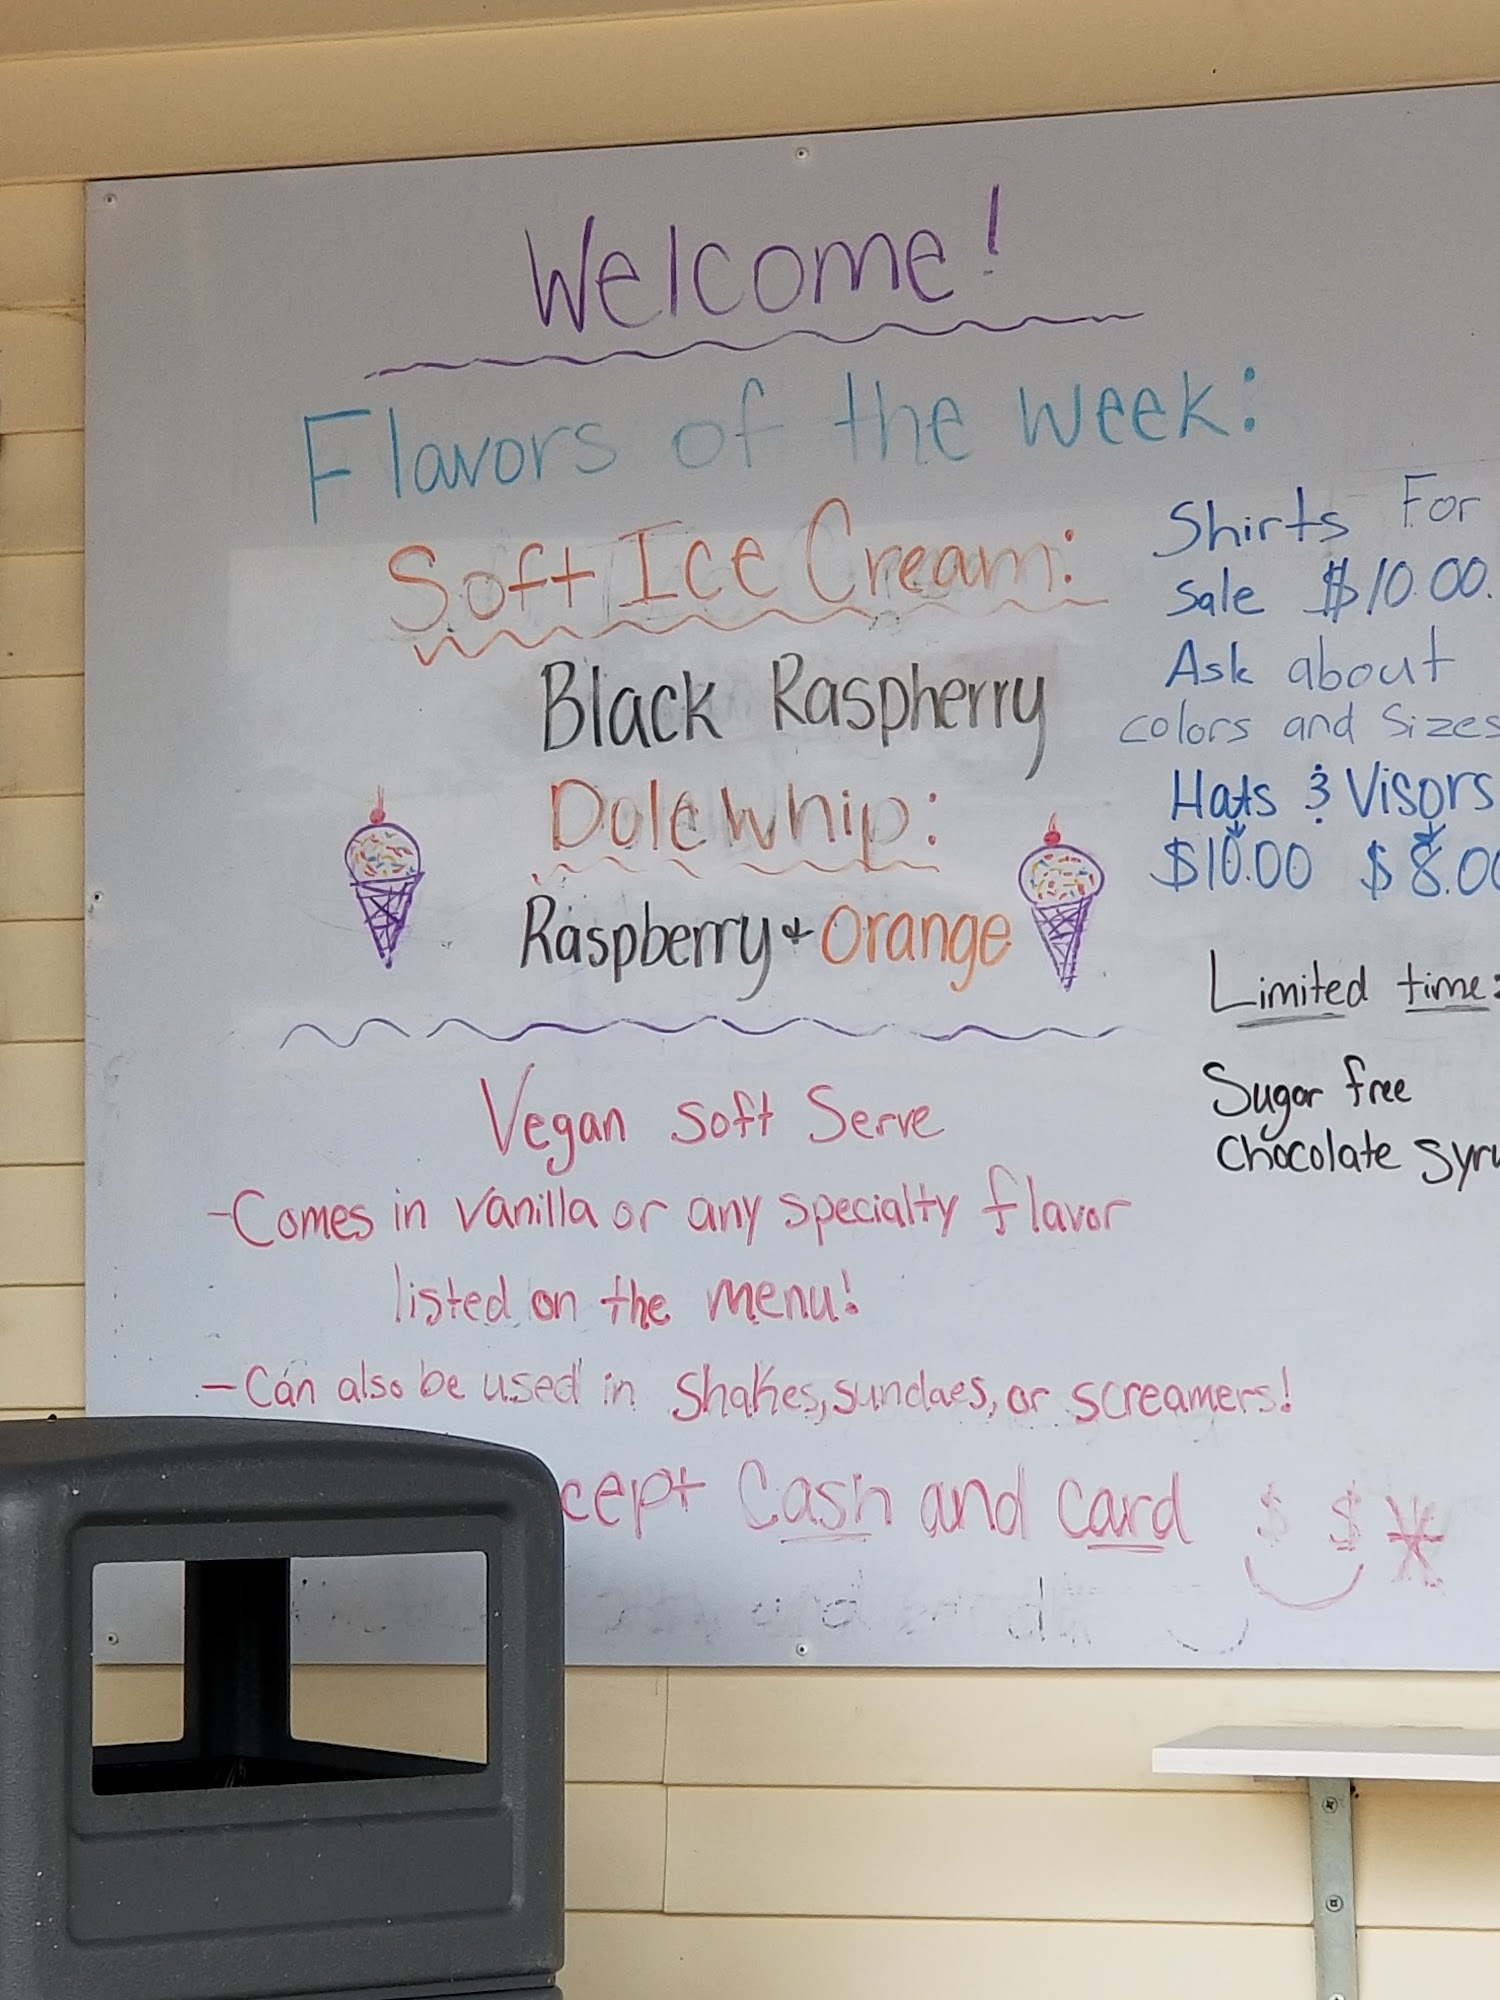 Welcome!
Flavors of the week:
Soft Ice Cream:
Black Raspherry
Dole Whip:
Raspberry + Orange
Vegan Soft Serve
-Comes in vanilla or any specialty flavor
listed on the menu!
-Can also be used in shakes, sundaes, or screamers!
cept Cash and Card $ $ *
Shirts For
Sale $10.00.
Ask about
colors and Sizes
Hats & Visors
$10.00 $8.00
Limited time:
Sugar free
Chocolate Syru